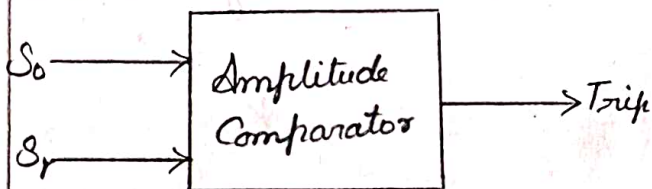 So
Amplitude
Comparator
Trip
Sr